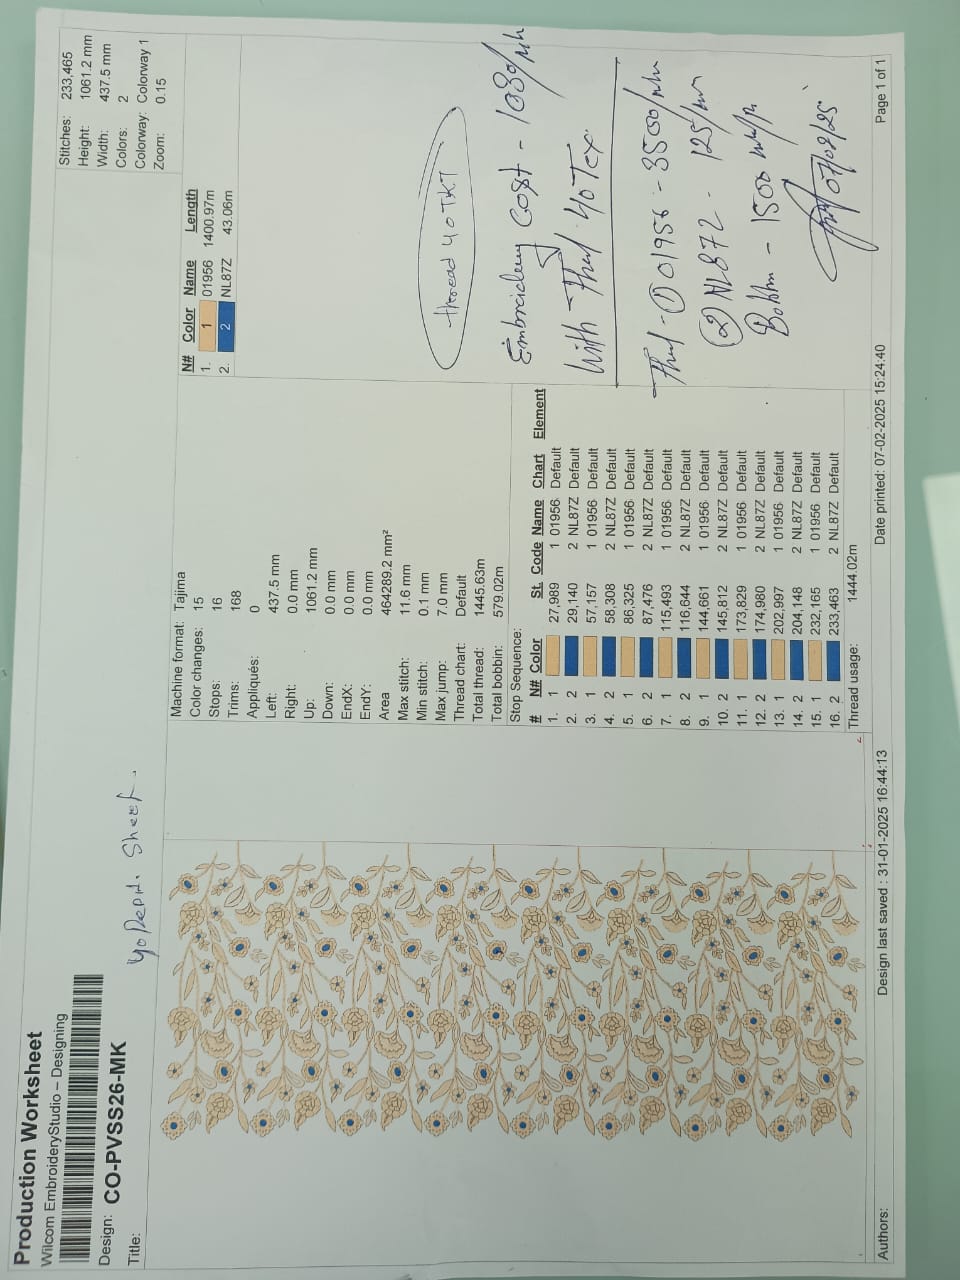 Production Worksheet
Wilcom EmbroideryStudio – Designing
Design: CO-PVSS26-MK
Title:
Stitches: 233,465
Height: 1061.2 mm
Width: 437.5 mm
Colors: 2
Colorway: Colorway 1
Zoom: 0.15
Sheet.
Machine format: Tajima
Color changes: 15
Stops: 16
Trims: 168
Appliqués: 0
Left: 437.5 mm
Right: 0.0 mm
Up: 1061.2 mm
Down: 0.0 mm
EndX: 0.0 mm
EndY: 0.0 mm
Area 464289.2 mm²
Max stitch: 11.6 mm
Min stitch: 0.1 mm
Max jump: 7.0 mm
Thread chart: Default
Total thread: 1445.63m
Total bobbin: 579.02m
N# Color Name Length
1. 1 01956 1400.97m
2. 2 NL87Z 43.06m
Stop Sequence:
# N# Color St. Code Name Chart Element
1. 1 27,989 1 01956 Default
2. 2 29,140 2 NL87Z Default
3. 1 57,157 1 01956 Default
4. 2 58,308 2 NL87Z Default
5. 1 86,325 1 01956 Default
6. 2 87,476 2 NL87Z Default
7. 1 115,493 1 01956 Default
8. 2 116,644 2 NL87Z Default
9. 1 144,661 1 01956 Default
10. 2 145,812 2 NL87Z Default
11. 1 173,829 1 01956 Default
12. 2 174,980 2 NL87Z Default
13. 1 202,997 1 01956 Default
14. 2 204,148 2 NL87Z Default
15. 1 232,165 1 01956 Default
16. 2 233,463 2 NL87Z Default
Thread usage: 1444.02m
thread 40 TKT
Embroidery Cost - 1080/
With 40 Tex
① 01956 - 3500/
② NL872 - 125/
Bobbin - 1500
07/02/25
Authors:
Design last saved : 31-01-2025 16:44:13
Date printed: 07-02-2025 15:24:40
Page 1 of 1